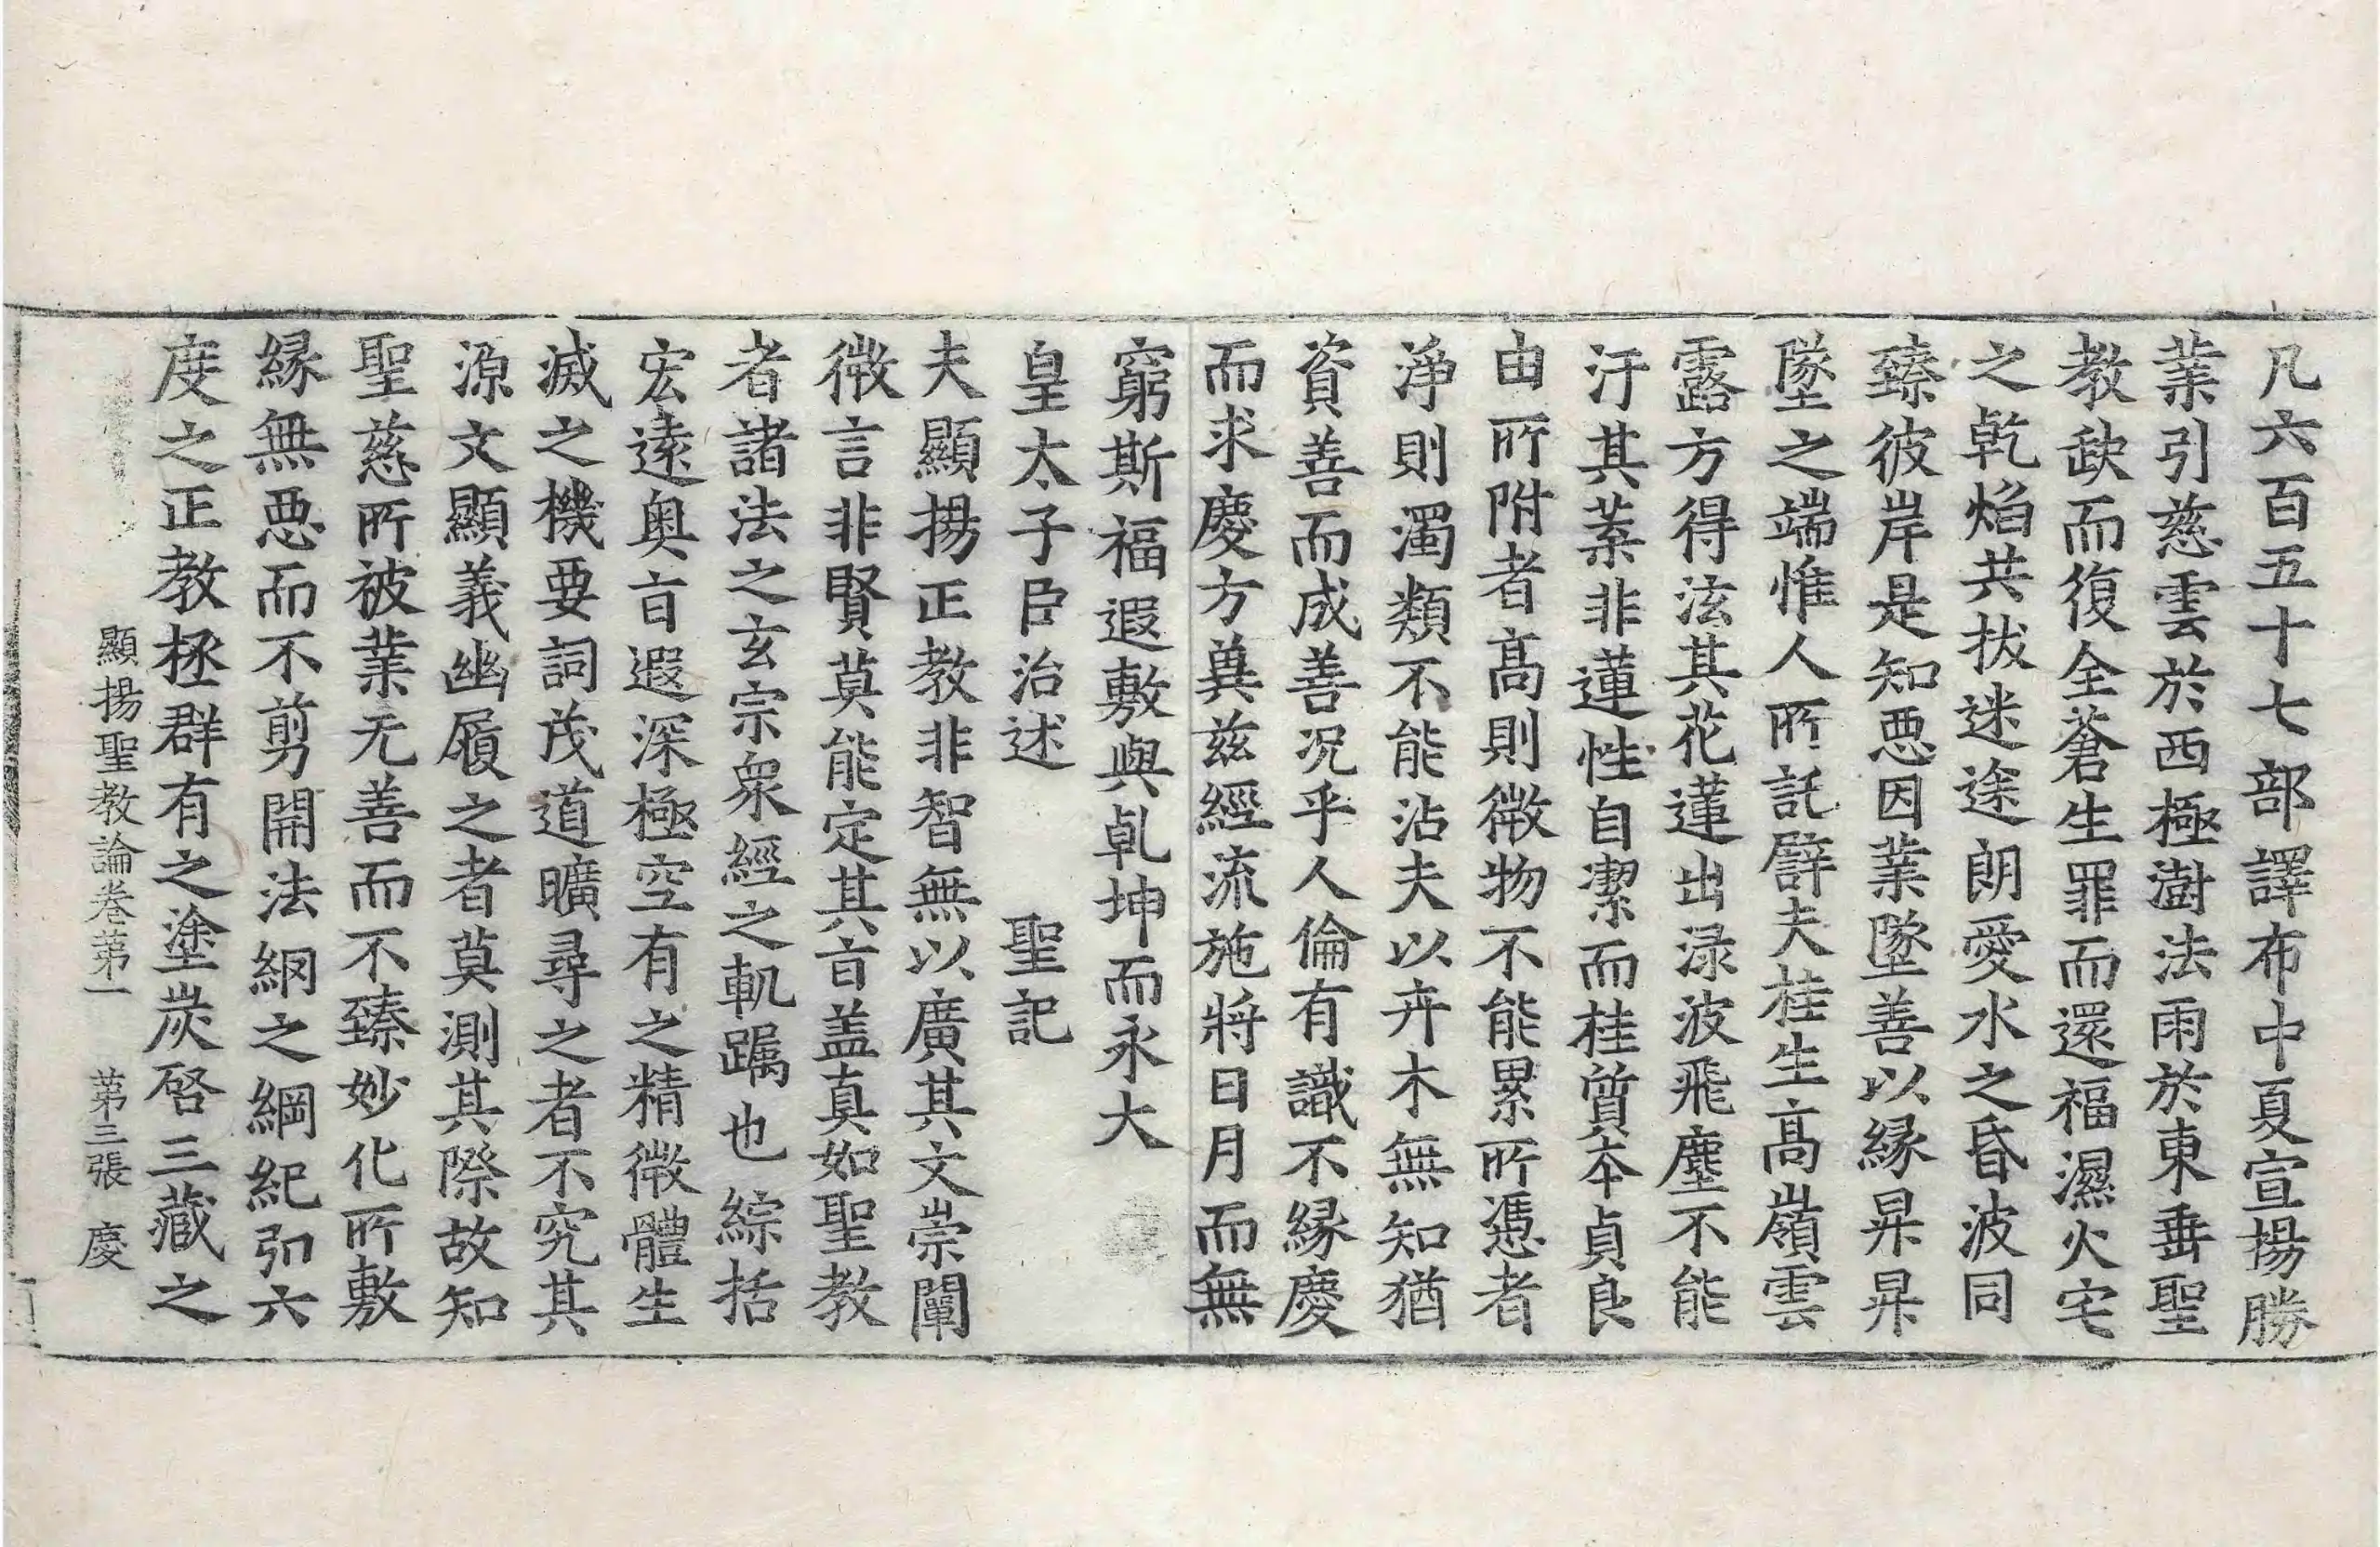 凡六百五十七部譯布中夏宣揚勝
業引慈雲於西極澍法雨於東垂聖
教缺而復全蒼生罪而還福濕火宅
之乾焰共拔迷途朗愛水之昏波同
臻彼岸是知惡因業墜善以緣昇昇
墜之端惟人所託譬夫桂生高嶺雲
露方得泫其花蓮出渌波飛塵不能
汙其葉非蓮性自潔而桂質本貞良
由所附者高則微物不能累所憑者
淨則濁類不能沾夫以卉木無知猶
資善而成善况乎人倫有識不緣慶
而求慶方冀茲經流施將日月而無
窮斯福遐敷與乹坤而永大
皇太子臣治述　聖記
夫顯揚正教非智無以廣其文崇闡
微言非賢莫能定其旨盖真如聖教
者諸法之玄宗衆經之軌躅也綜括
宏遠奥旨遐深極空有之精微體生
滅之機要詞茂道曠尋之者不究其
源文顯義幽履之者莫測其際故知
聖慈所被業无善而不臻妙化所敷
緣無惡而不剪開法網之綱紀弘六
度之正教拯群有之塗炭啓三藏之
顯揚聖教論卷第一　第三張　慶